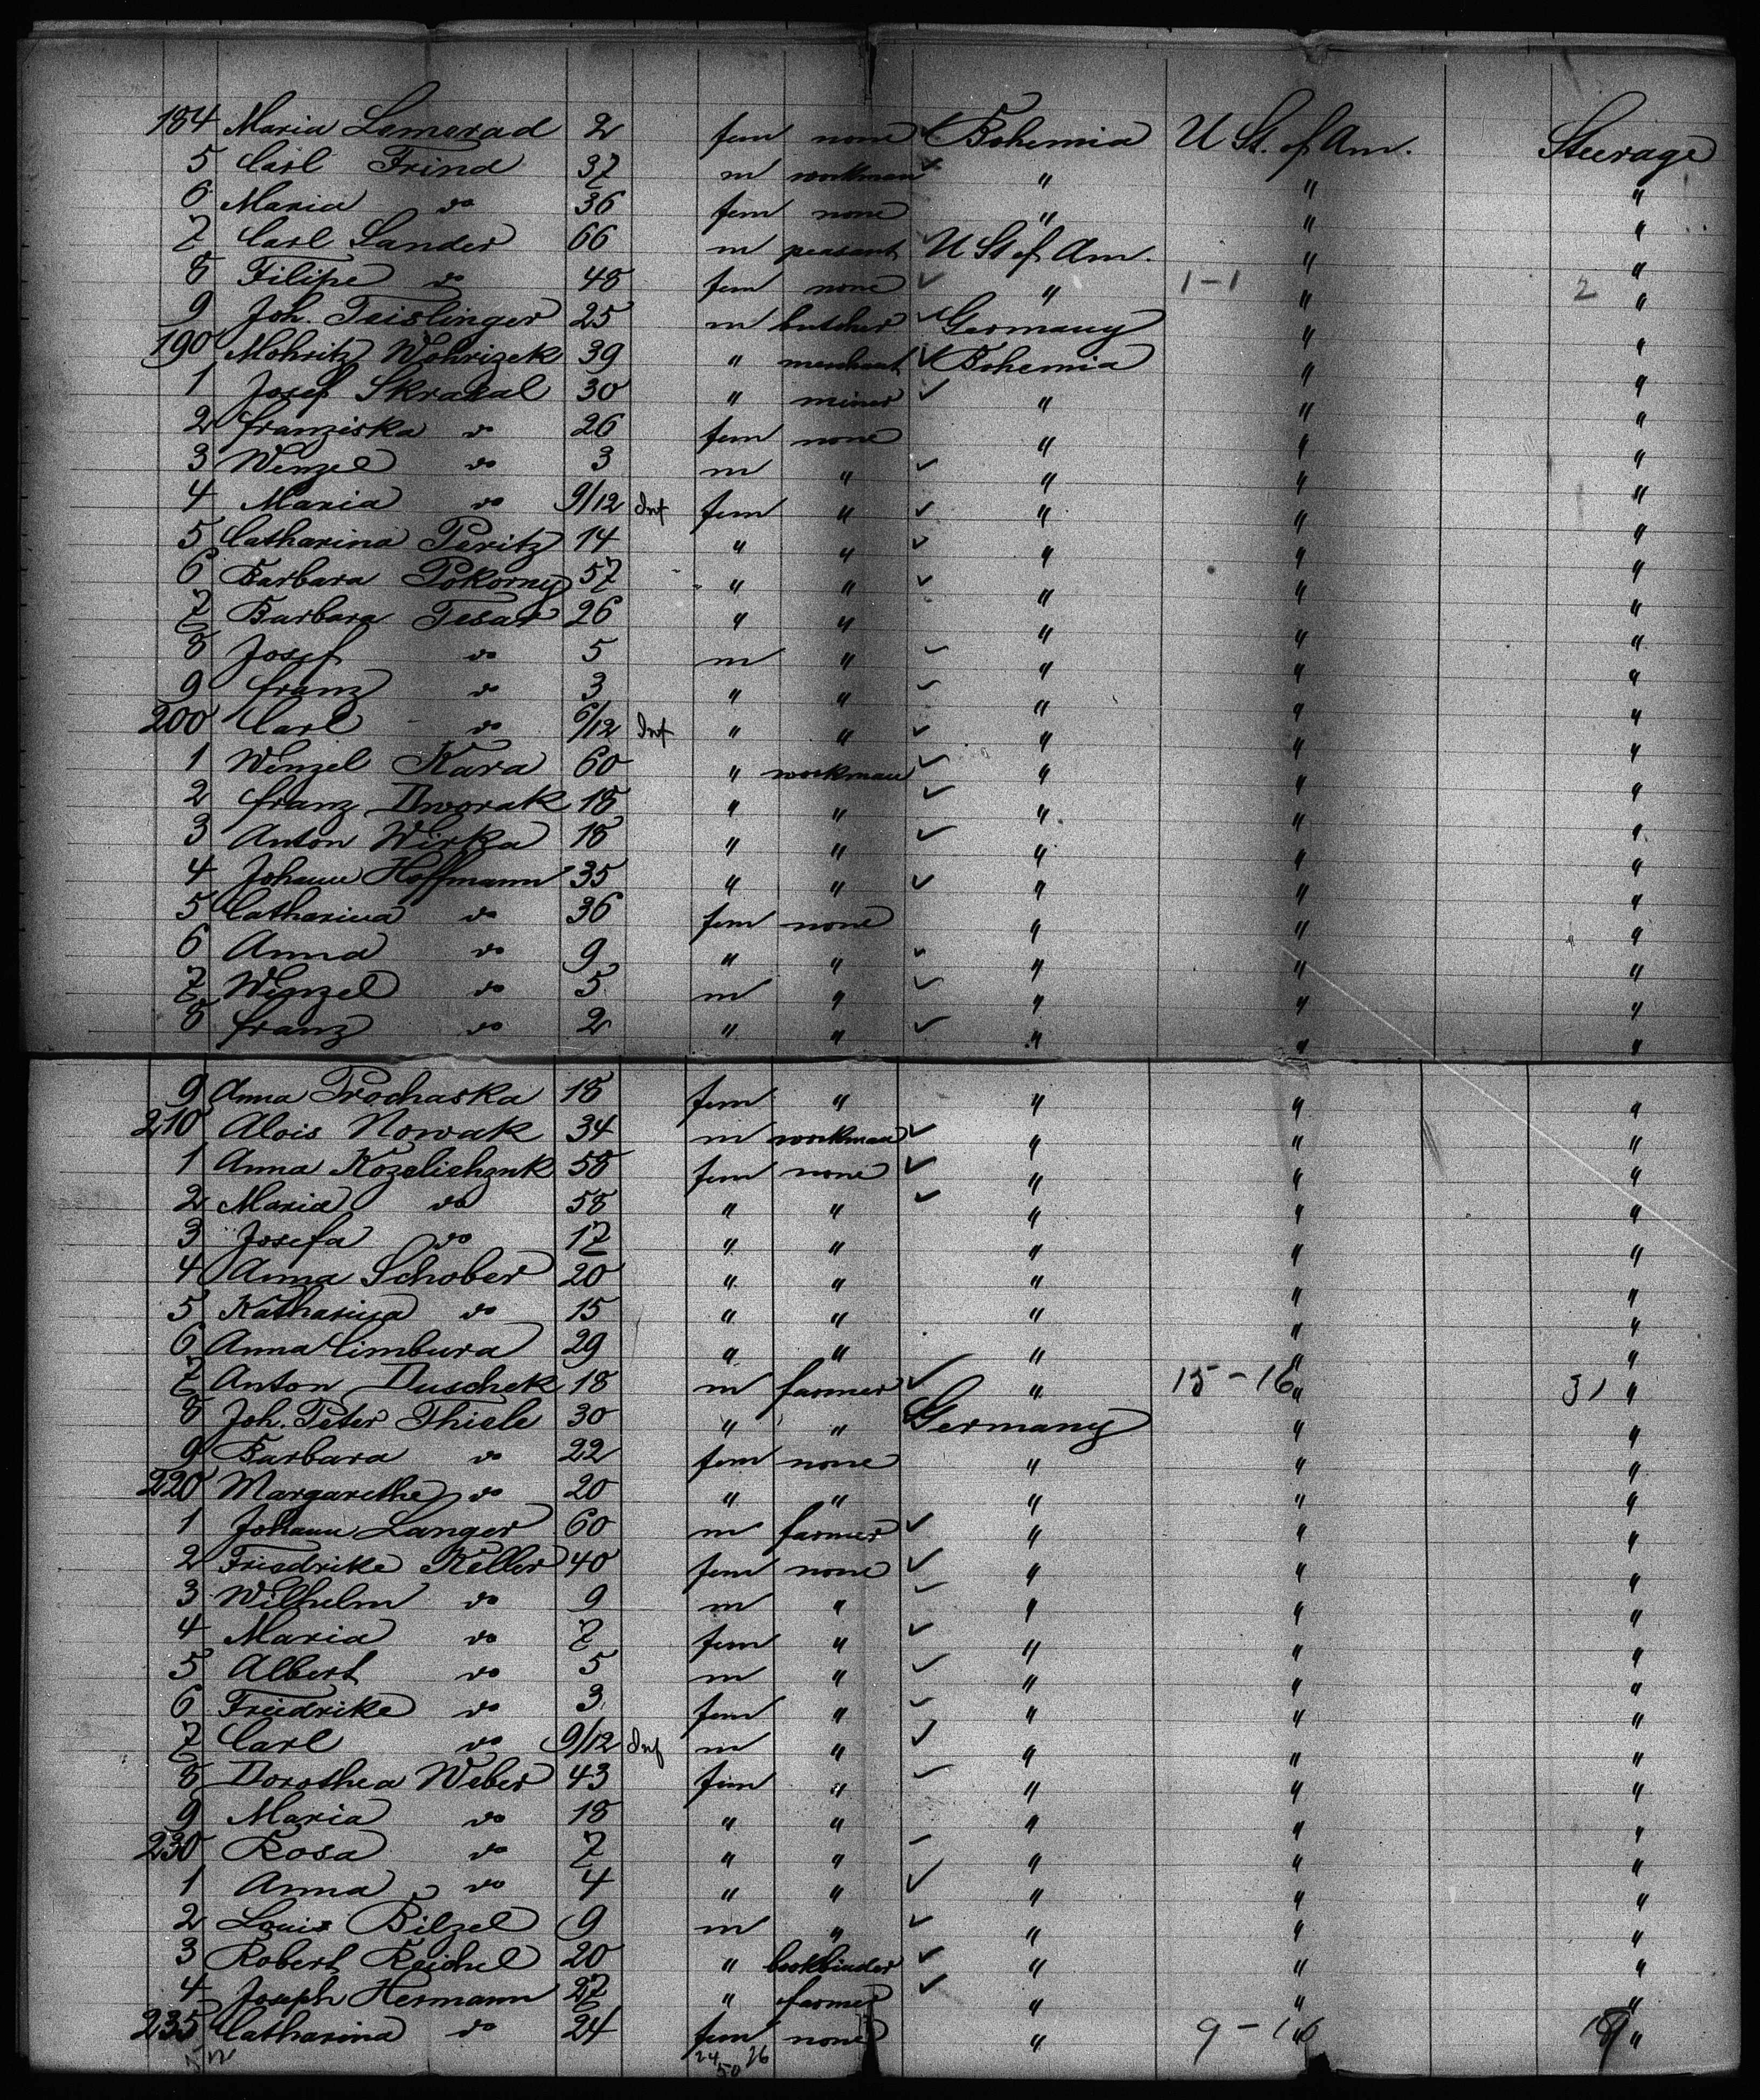 184 Maria Lamerad 2 fem none Bohemia U St. of Am. Steerage
5 Carl Frind 37 m workman " " "
6 Maria do 36 fem none " " "
7 Carl Sander 66 m peasant U St of Am. " "
8 Filipe do 48 fem none " 1-1 " 2 "
9 Joh. Teislinger 25 m butcher Germany " "
190 Mohritz Wohrizek 39 " merchant Bohemia " "
1 Josef Skrabal 30 " miner " " "
2 Franziska do 26 fem none " " "
3 Wenzel do 3 m " " " "
4 Maria do 9/12 Inf fem " " " "
5 Catharina Peritz 14 " " " " "
6 Barbara Pokorny 57 " " " " "
7 Barbara Tesar 26 " " " " "
8 Josef do 5 m " " " "
9 Franz do 3 " " " " "
200 Carl do 6/12 Inf " " " " "
1 Wenzel Kara 60 " workman " " "
2 Franz Dworak 18 " " " " "
3 Anton Wirka 18 " " " " "
4 Johann Hoffmann 35 " " " " "
5 Catharina do 36 fem none " " "
6 Anna do 9 " " " " "
7 Wenzel do 5 m " " " "
8 Franz do 2 " " " " "
9 Anna Prochaska 18 fem " " " "
210 Alois Nowak 34 m workman " " "
1 Anna 58 fem none " " "
2 Maria do 58 " " " " "
3 Josefa do 17 " " " " "
4 Anna Schober 20 " " " " "
5 Katharina do 15 " " " " "
6 Anna Cimbura 29 " " " " "
7 Anton Duschek 18 m farmer " 15-16 " 31 "
8 Joh. Peter Thiele 30 " " Germany " "
9 Barbara do 22 fem none " " "
220 Margarethe do 20 " " " " "
1 Johann Langer 60 m farmer " " "
2 Friedrike Keller 40 fem none " " "
3 Wilhelm do 9 m " " " "
4 Maria do 7 fem " " " "
5 Albert do 5 m " " " "
6 Friedrike do 3 fem " " " "
7 Carl do 9/12 Inf m " " " "
8 Dorothea Weber 43 fem " " " "
9 Maria do 18 " " " " "
230 Rosa do 7 " " " " "
1 Anna do 4 " " " " "
2 Louis Bilzel 9 m " " " "
3 Robert Reichel 20 " bookbinder " " "
4 Joseph Hermann 27 " farmer " " "
235 Catharina do 24 fem none " 9-10 " "
24 26
50